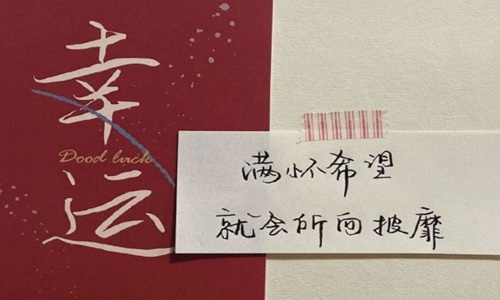 幸运
Dood luck
满怀希望
就会所向披靡